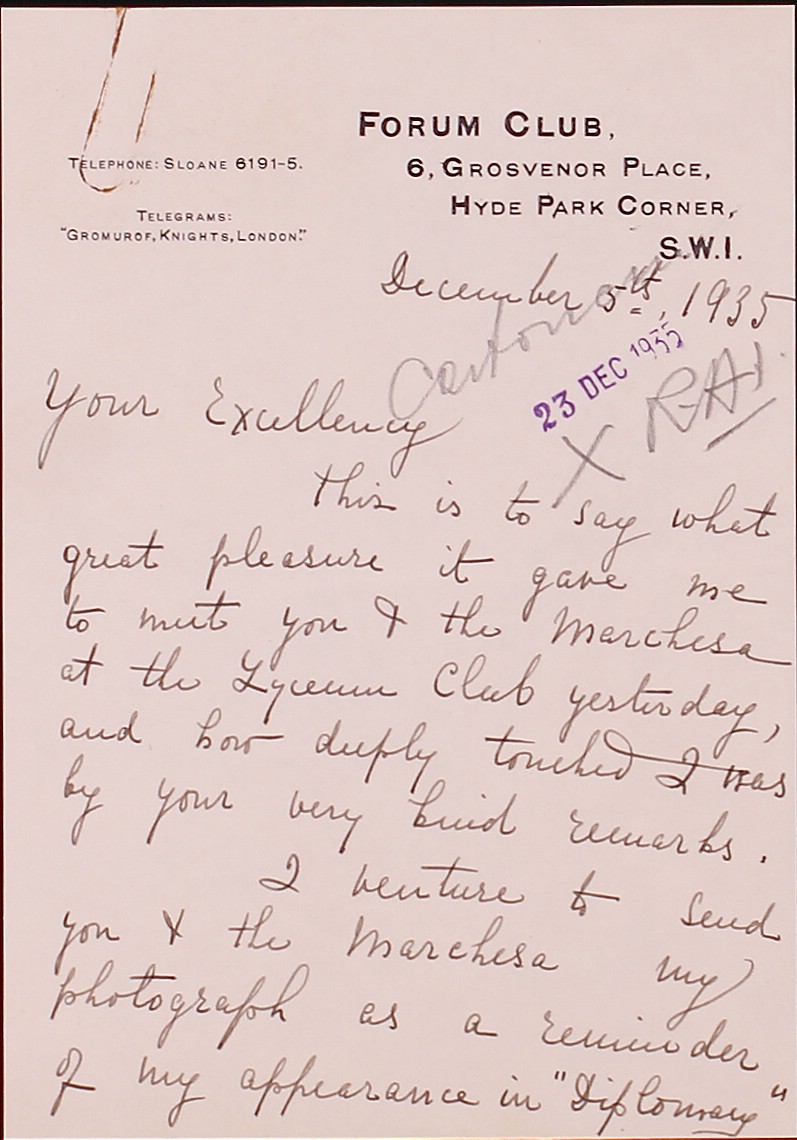 FORUM CLUB,
6, GROSVENOR PLACE,
HYDE PARK CORNER,
S.W.1.
TELEPHONE: SLOANE 6191-5.
TELEGRAMS:
"GROMUROF, KNIGHTS, LONDON."
December 5th, 1935
23 DEC 1935
X RAI.
Your Excellency
This is to say what
great pleasure it gave me
to meet you & the Marchesa
at the Lyceum Club yesterday,
and how deeply touched I was
by your very kind remarks.
I venture to send
you & the Marchesa my
photograph as a reminder
of my appearance in "Diplomacy"